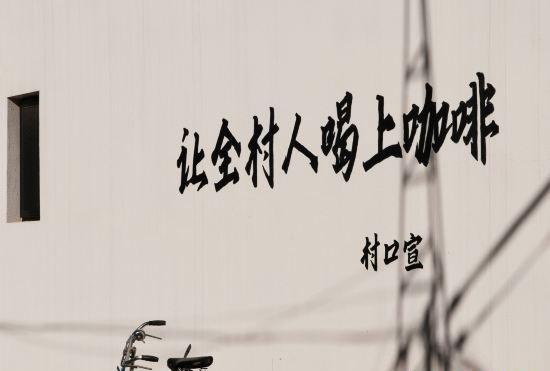 让全村人喝上咖啡
村口宣